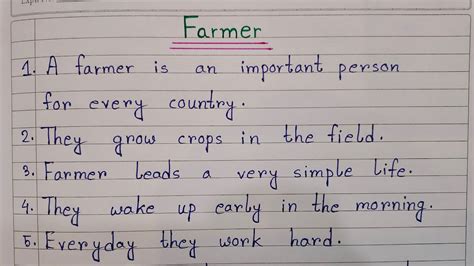 Farmer
1. A farmer is an important person
for every country.
2. They grow crops in the field.
3. Farmer leads a very simple life.
4. They wake up early in the morning.
5. Everyday they work hard.